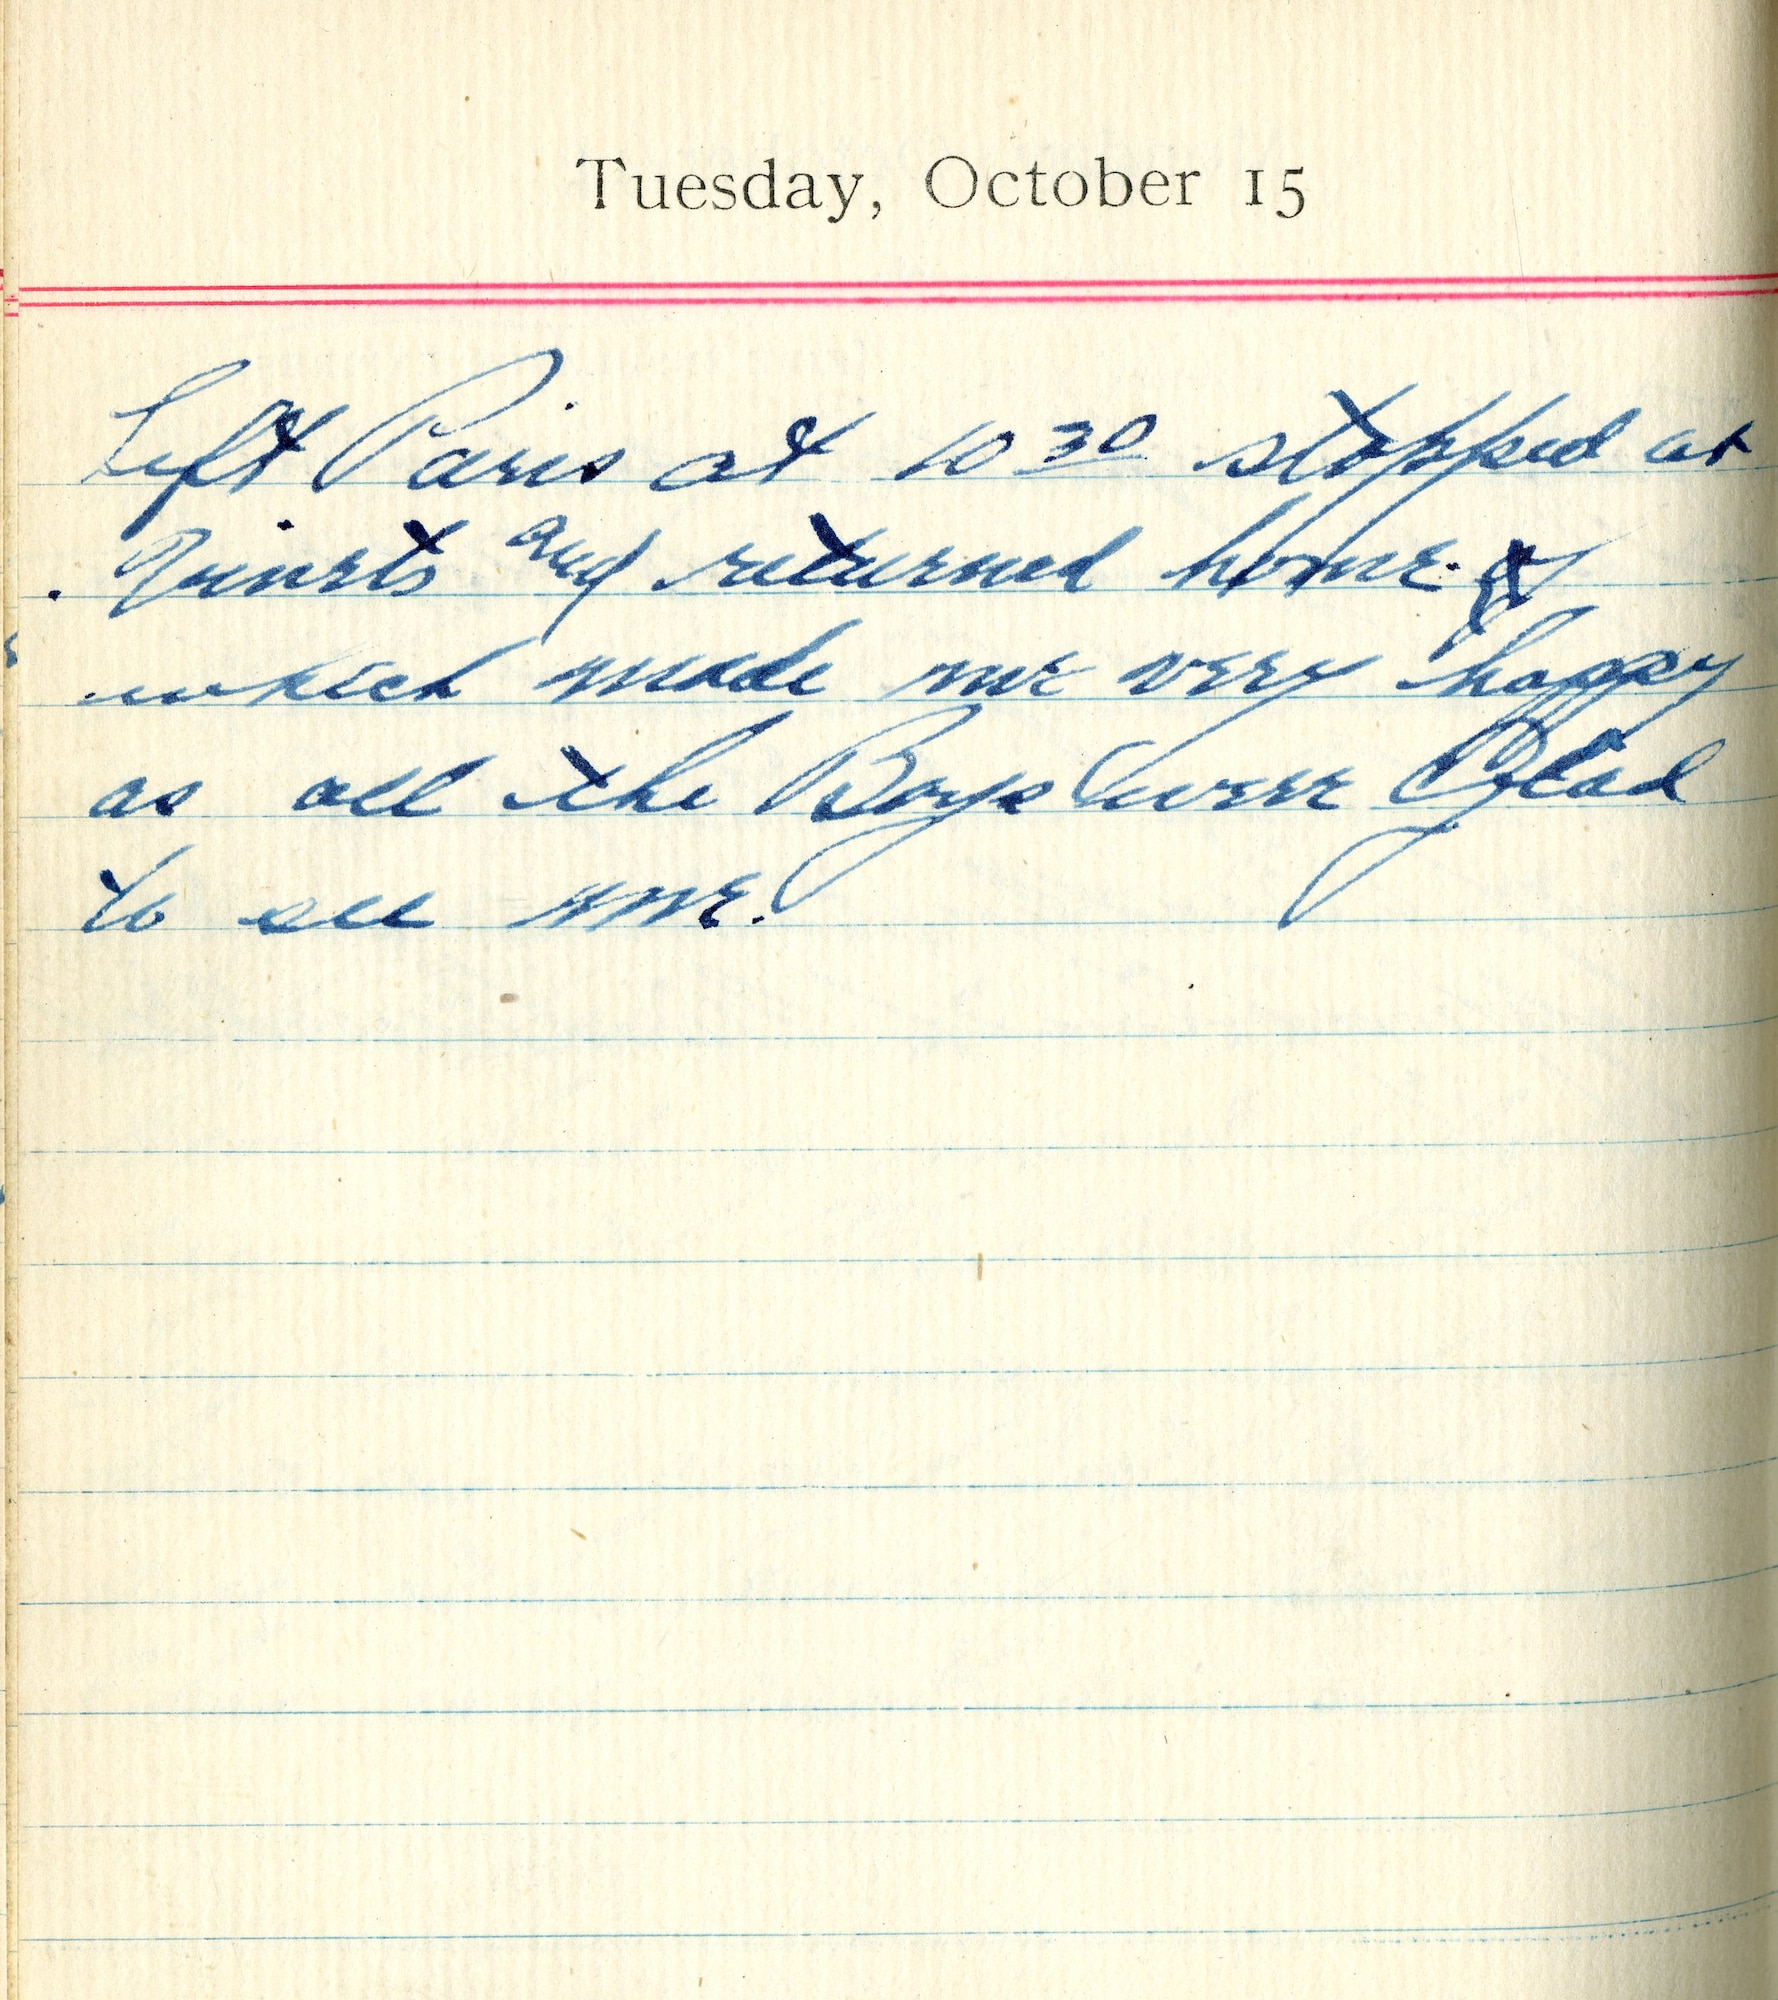 Tuesday, October 15
Left Paris at 10 30 stopped at
and returned home.
which made me very happy
as all the Boys were Glad
to see me.